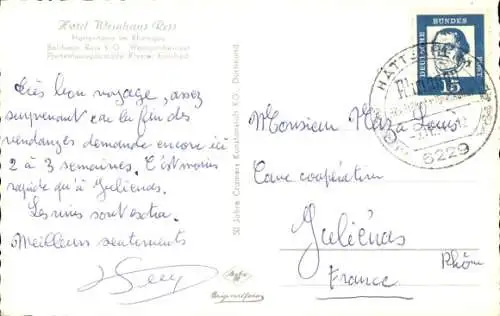 Hotel Weinhaus Ress
Hattenheim im Rheingau
Très bon voyage, assez
surprenant car la fin des
vendanges demande encore ici
2 à 3 semaines. C'est moins
rapide qu'à Juliénas.
Les vins sont extra.
Meilleurs sentiments
50 Jahre Cramers Kunstanstalt K.G., Dortmund
DEUTSCHE
BUNDES
POST
15
6229
Monsieur Louis
Cave coopérative
Juliénas
Rhône
France